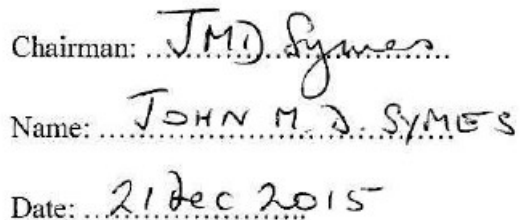 Chairman: JMD Symes
Name: JOHN M. D. SYMES
Date: 21 Dec 2015